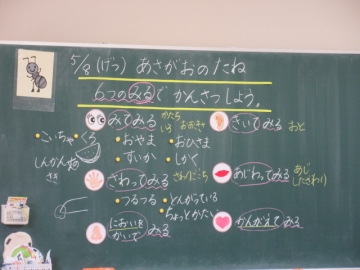 5/8(げつ) あさがおのたね
6つのみるで かんさつしよう。
みてみる かたち いろ おおきさ
きいてみる おと
こいちゃ くろ
おやま
おひさま
すいか
しかく
さわってみる さわりごこち
あじわってみる あじ
つるつる
とんがっている
ちょっとかたい
においをかいでみる
かんがえてみる